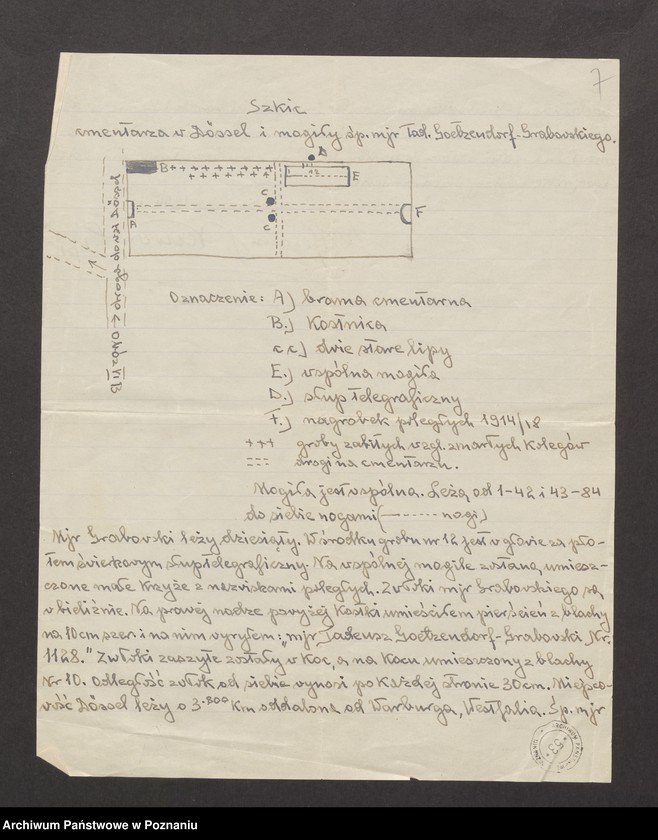 7
Szkic
cmentarza w Dössel i mogiły śp. mjr Tad. Goetzendorf-Grabowskiego.
D
B +++++++++++
E
C
A
C
F
Oflag VI B
Oznaczenie: A.) brama cmentarna
B.) Kostnica
c c.) dwie stare lipy
E.) wspólna mogiła
D.) słup telegraficzny
F.) nagrobek poległych 1914/18
+++ groby zabitych wzgl. zmarłych Kolegów
=== drogi na cmentarzu.
Mogiła jest wspólna. Leżą od 1-42 i 43-84
do siebie nogami (———— nogi)
Mjr Grabowski leży dziesiąty. W środku grobu nr 12 jest w głowie za pło-
tem świerkowym słup telegraficzny. Na wspólnej mogile zostaną umiesz-
czone małe krzyże z nazwiskami poległych. Zwłoki mjr Grabowskiego są
w bieliźnie. Na prawej nodze powyżej kostki umieściłem pierścień z blachy
na 10cm szer. i na nim wyryłem: "mjr Tadeusz Goetzendorf-Grabowski Nr.
1128." Zwłoki zaszyte zostały w koc, a na kocu umieszczony z blachy
Nr 10. Odległość zwłok od siebie wynosi po każdej stronie 30cm. Miejsco-
wość Dössel leży o 3.800 km oddalona od Warburga, Westfalia. Śp. mjr
53
Archiwum Państwowe w Poznaniu